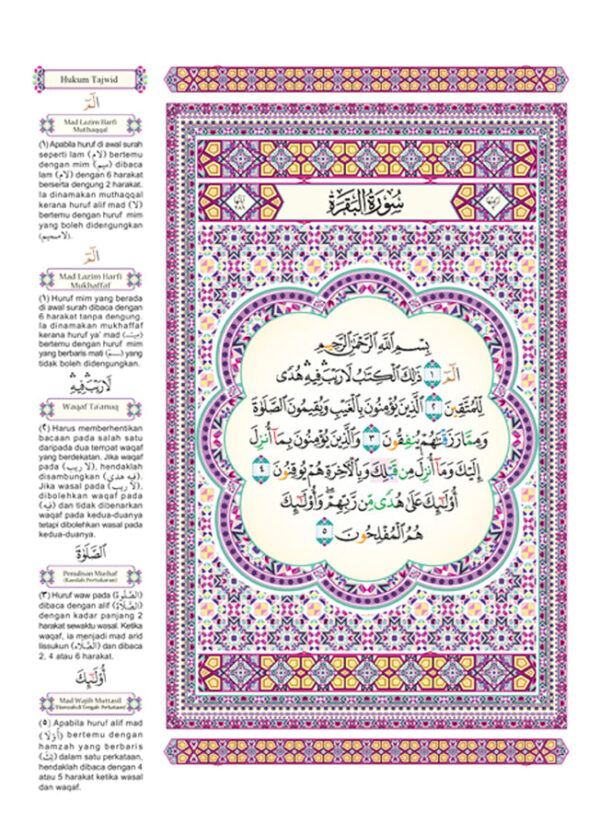 Hukum Tajwid
الٓمٓ
Mad Lazim Harfi
Muthaqqal
(١) Apabila huruf di awal surah
seperti lam (لام) bertemu
dengan mim (ميم) dibaca
lam (لام) dengan 6 harakat
berserta dengung 2 harakat.
Ia dinamakan muthaqqal
kerana huruf alif mad (لا)
bertemu dengan huruf mim
yang boleh didengungkan
الٓمٓ
Mad Lazim Harfi
Mukhaffaf
(١) Huruf mim yang berada
di awal surah dibaca dengan
6 harakat tanpa dengung.
Ia dinamakan mukhaffaf
kerana huruf ya' mad
bertemu dengan huruf mim
yang berbaris mati yang
tidak boleh didengungkan.
لَا رَيْبَ ۛ فِيهِ ۛ
Waqaf Ta'anuq
(٢) Harus memberhentikan
bacaan pada salah satu
daripada dua tempat waqaf
yang berdekatan. Jika waqaf
pada (لا ريب), hendaklah
disambungkan (فيه هدى).
Jika wasal pada (لا ريب),
dibolehkan waqaf pada
(فيه) dan tidak dibenarkan
waqaf pada kedua-duanya
tetapi dibolehkan wasal pada
kedua-duanya.
الصَّلَوٰةَ
Penulisan Mushaf
(Kaedah Pertukaran)
(٣) Huruf waw pada (الصَّلَوٰة)
dibaca dengan alif (الصَّلَاة)
dengan kadar panjang 2
harakat sewaktu wasal. Ketika
waqaf, ia menjadi mad arid
lissukun (الصَّلَاه) dan dibaca
2, 4 atau 6 harakat.
أُو۟لَـٰٓئِكَ
Mad Wajib Muttasil
(Hamzah di Tengah Perkataan)
(٥) Apabila huruf alif mad
(أُوْلَا) bertemu dengan
hamzah yang berbaris
(ئِكَ) dalam satu perkataan,
hendaklah dibaca dengan 4
atau 5 harakat ketika wasal
dan waqaf.
سُورَةُ البَقَرَةِ
آياتها
٢٨٦
بِسْمِ اللَّهِ الرَّحْمَـٰنِ الرَّحِيمِ
الٓمٓ ١ ذَٰلِكَ الْكِتَـٰبُ لَا رَيْبَ ۛ فِيهِ ۛ هُدًى
لِّلْمُتَّقِينَ ٢ الَّذِينَ يُؤْمِنُونَ بِالْغَيْبِ وَيُقِيمُونَ الصَّلَوٰةَ
وَمِمَّا رَزَقْنَـٰهُمْ يُنفِقُونَ ٣ وَالَّذِينَ يُؤْمِنُونَ بِمَآ أُنزِلَ
إِلَيْكَ وَمَآ أُنزِلَ مِن قَبْلِكَ وَبِالْـَٔاخِرَةِ هُمْ يُوقِنُونَ ٤
أُو۟لَـٰٓئِكَ عَلَىٰ هُدًى مِّن رَّبِّهِمْ ۖ وَأُو۟لَـٰٓئِكَ
هُمُ الْمُفْلِحُونَ ٥